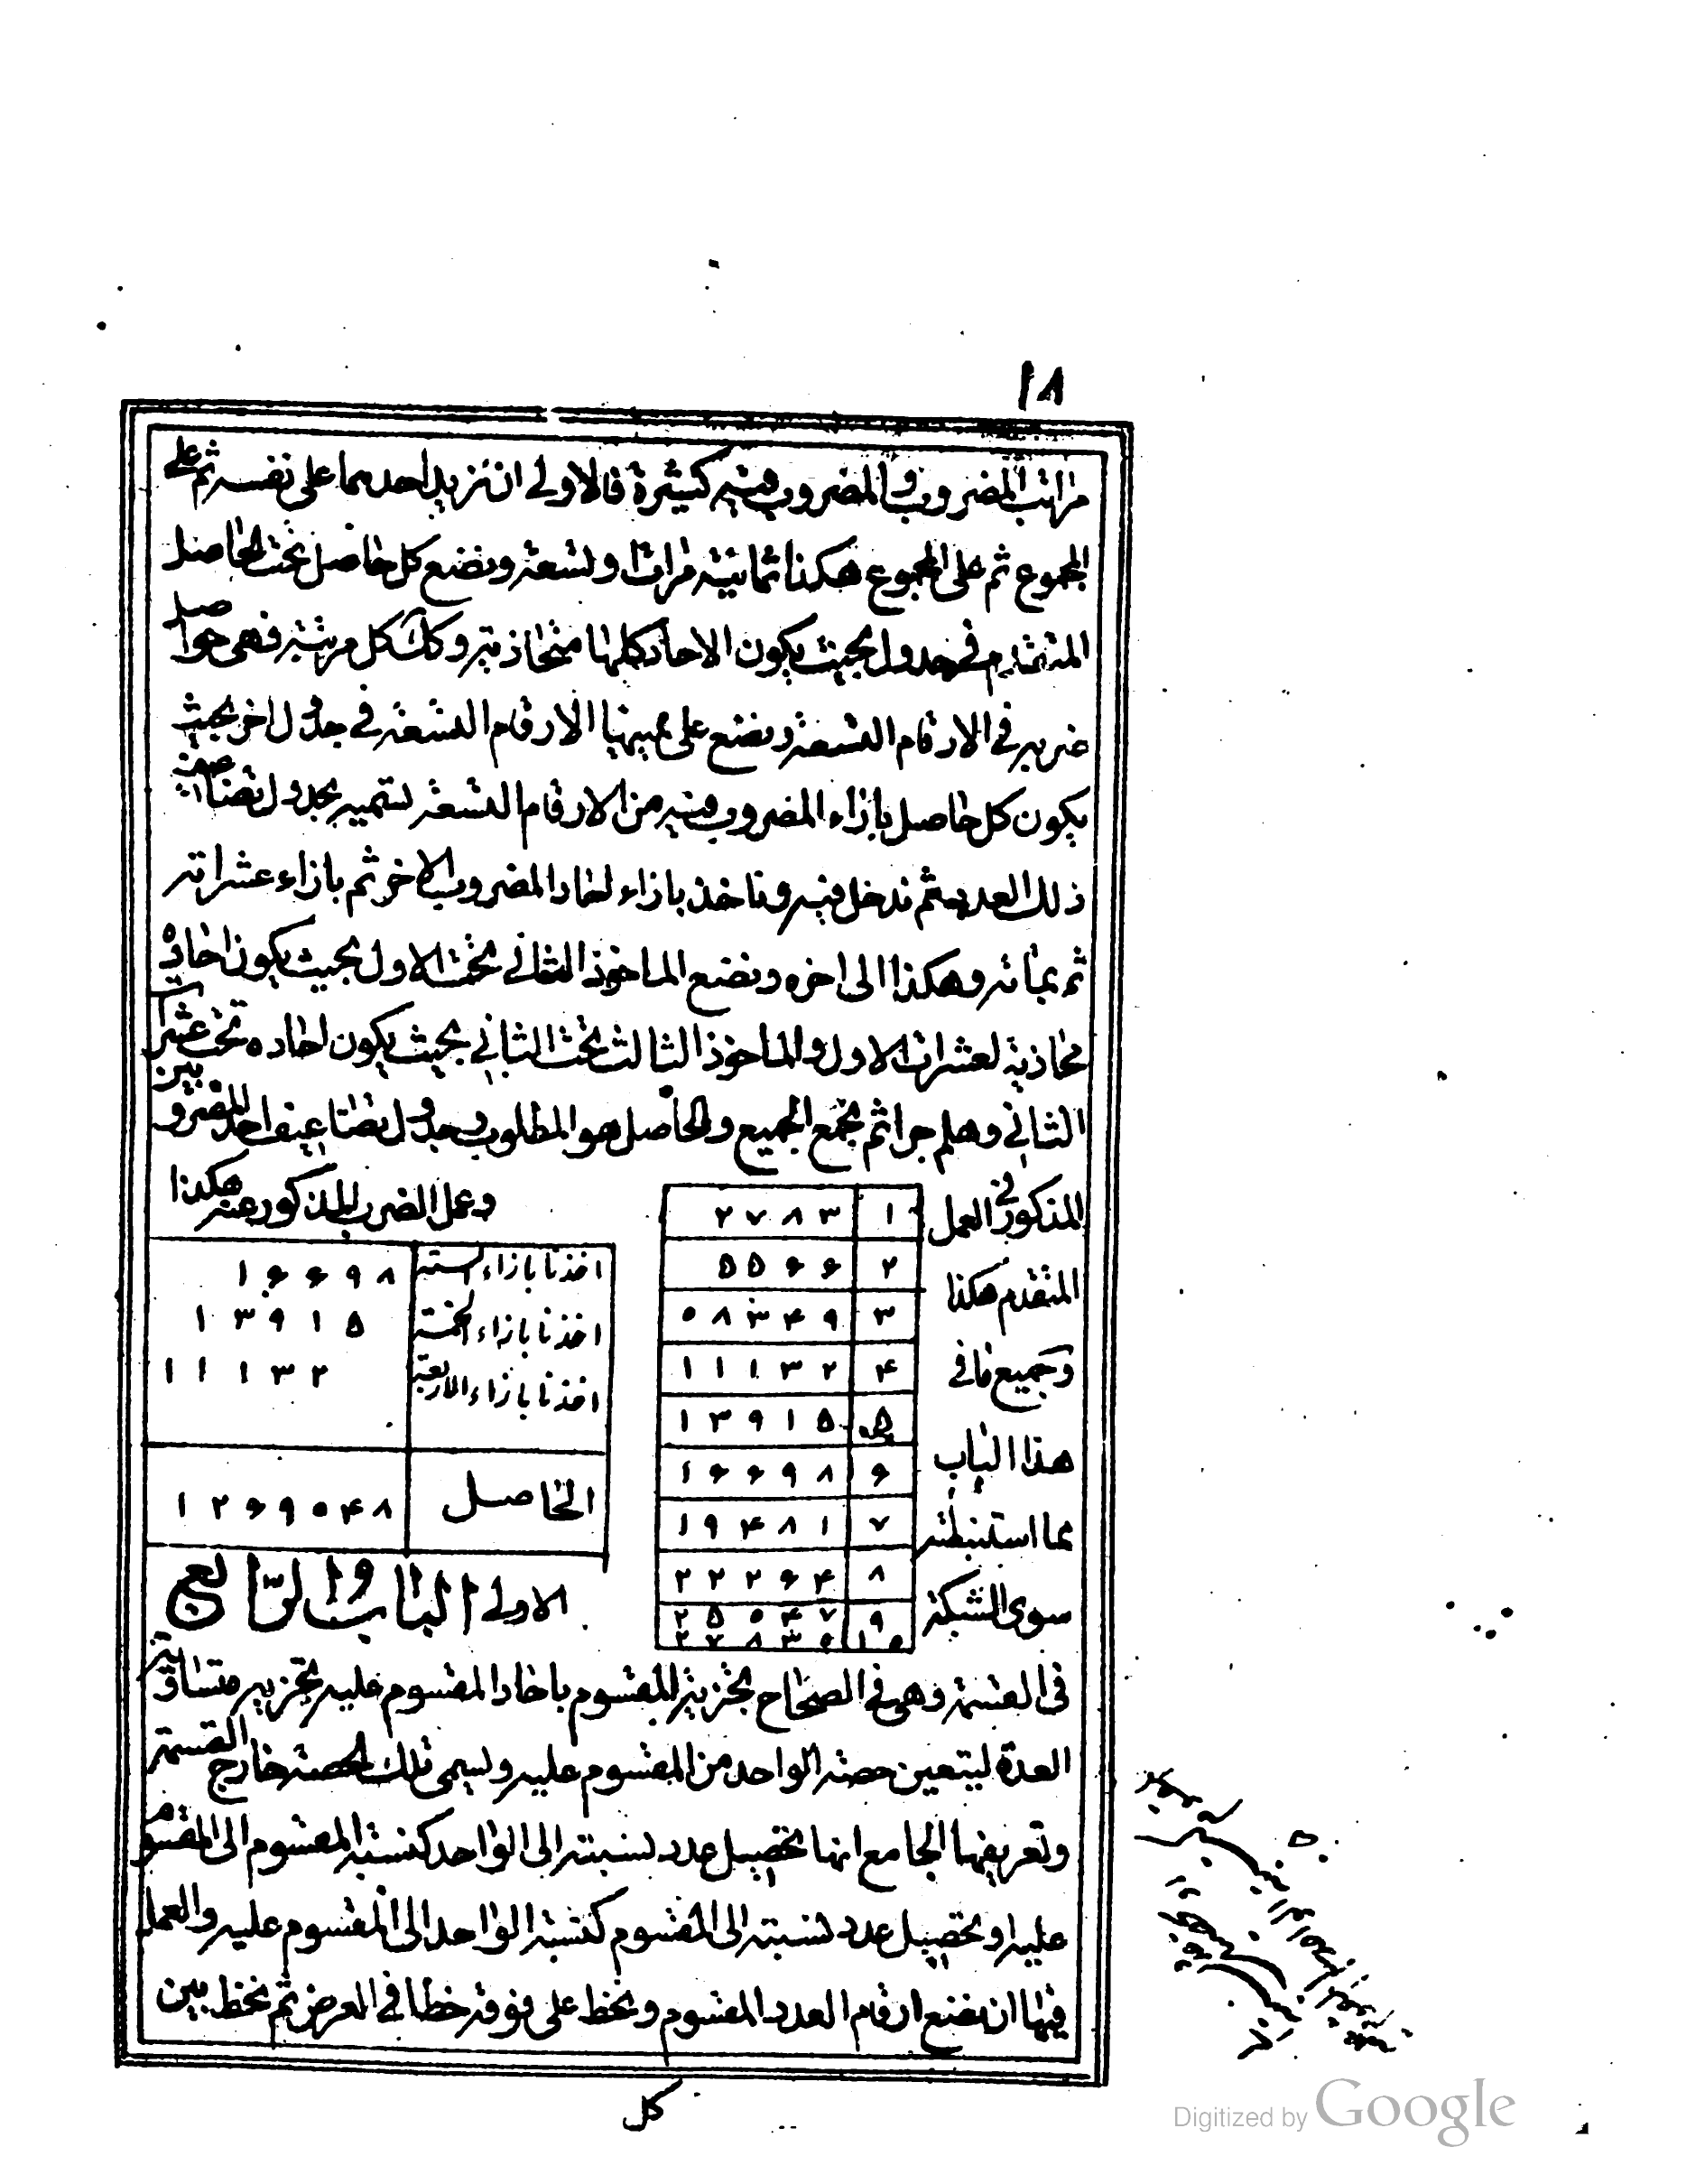 ١٨
مراتب المضروب والمضروب فيه كثيرة فالاولى ان نزيد احدهما على نفسه ثم على
المجموع ثم على المجموع هكذا ثمانية مرات او تسعة ونضع كل حاصل تحت الحاصل
المتقدم في جدول بحيث يكون الاحاد كلها متحاذية وكذلك كل مرتبة فهى حواصل
ضربه في الارقام التسعة ونضع على يمينها الارقام التسعة في جدول اخر بحيث
يكون كل حاصل بازاء المضروب فيه من الارقام التسعة نسميه بجدول تضاعيف
ذلك العدد ثم ندخل فيه وناخذ بازاء احاد المضروب الاخر ثم بازاء عشراته
ثم بمأته وهكذا الى اخره ونضع الماخوذ الثاني تحت الاول بحيث يكون احاده
محاذية لعشرات الاول والماخوذ الثالث تحت الثاني بحيث يكون احاده تحت عشرات
الثاني وهلم جرا ثم نجمع الجميع والحاصل هو المطلوب وجدول تضاعيف احد المضروبين
المذكور في العمل
المتقدم هكذا
وجميع ما في
هذا الباب
مما استنبطته
سوى الشبكة
١ ٢٧٨٣
٢ ٥٥۶۶
٣ ٠٨٣۴٩
۴ ١١١٣٢
۵ ١٣٩١۵
۶ ١۶۶٩٨
٧ ١٩۴٨١
٨ ٢٢٢۶۴
٩ ٢۵٠۴٧
١٠ ٢٧٨٣٠
وعمل الضرب المذكور عنه هكذا
اخذنا بازاء الستة ١۶۶٩٨
اخذنا بازاء الخمسة ١٣٩١۵
اخذنا بازاء الاربعة ١١١٣٢
الحاصل ١٢۶٩٠۴٨
الاولى الباب الرابع
في القسمة وهى في الصحاح تجزية المقسوم باحاد المقسوم عليه تجزية متساوية
العدة ليتعين حصة الواحد من المقسوم عليه وليسمى تلك الحصة خارج القسمة
وتعريفها الجامع انها تحصيل عدد نسبته الى الواحد كنسبة المقسوم الى المقسوم
عليه او تحصيل عدد نسبته الى المقسوم كنسبة الواحد الى المقسوم عليه والعمل
فيها ان نضع ارقام العدد المقسوم ونخط على فوقه خطا في العرض ثم نخط بين
كل
Digitized by Google